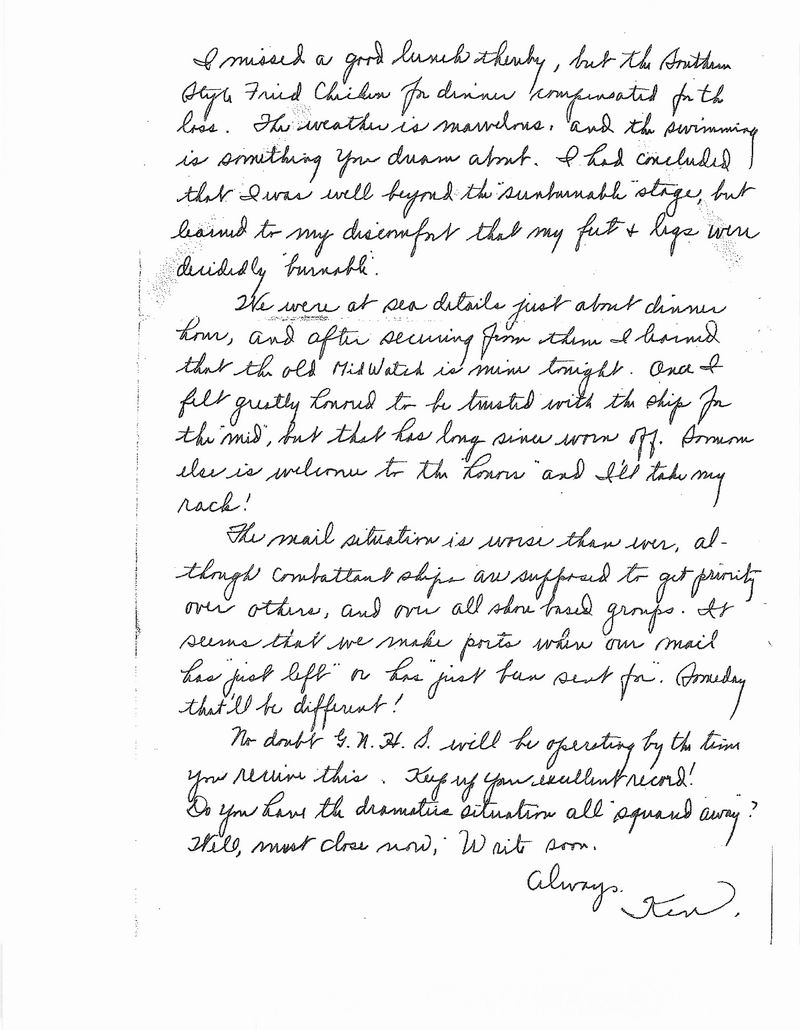 I missed a good lunch thereby, but the Southern
Style Fried Chicken for dinner compensated for the
loss. The weather is marvelous, and the swimming
is something you dream about. I had concluded
that I was well beyond the "sunburnable" stage, but
learned to my discomfort that my feet & legs were
decidedly "burnable".
We were at sea details just about dinner
hour, and after securing from them I learned
that the old MidWatch is mine tonight. Once I
felt greatly honored to be trusted with the ship for
the "mid", but that has long since worn off. Someone
else is welcome to the "honors" and I'll take my
rack!
The mail situation is worse than ever, al-
though combattant ships are supposed to get priority
over others, and over all shore based groups. It
seems that we make ports where our mail
has "just left" or has "just been sent for". Someday
that'll be different!
No doubt G.N.H.S. will be operating by the time
you receive this. Keep up your excellent record!
Do you have the dramatics situation all "squared away"?
Well, must close now, Write soon.
Always,
Ken.